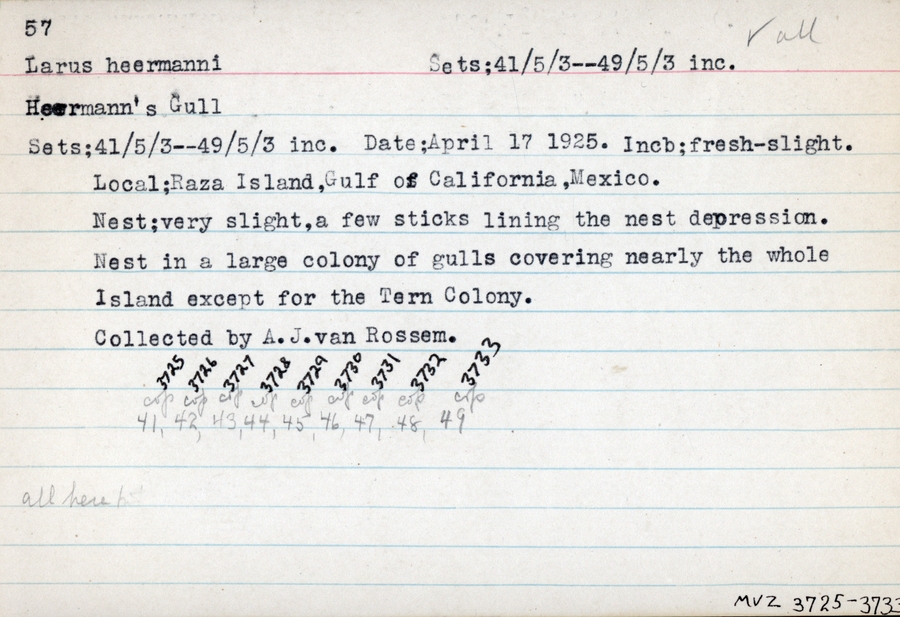 57
√ all
Larus heermanni Sets;41/5/3--49/5/3 inc.
Heermann's Gull
Sets;41/5/3--49/5/3 inc. Date;April 17 1925. Incb;fresh-slight.
Local;Raza Island,Gulf of California,Mexico.
Nest;very slight,a few sticks lining the nest depression.
Nest in a large colony of gulls covering nearly the whole
Island except for the Tern Colony.
Collected by A.J.van Rossem.
3725 3726 3727 3728 3729 3730 3731 3732 3733
41, 42, 43, 44, 45, 46, 47, 48, 49
all here
MVZ 3725-3733